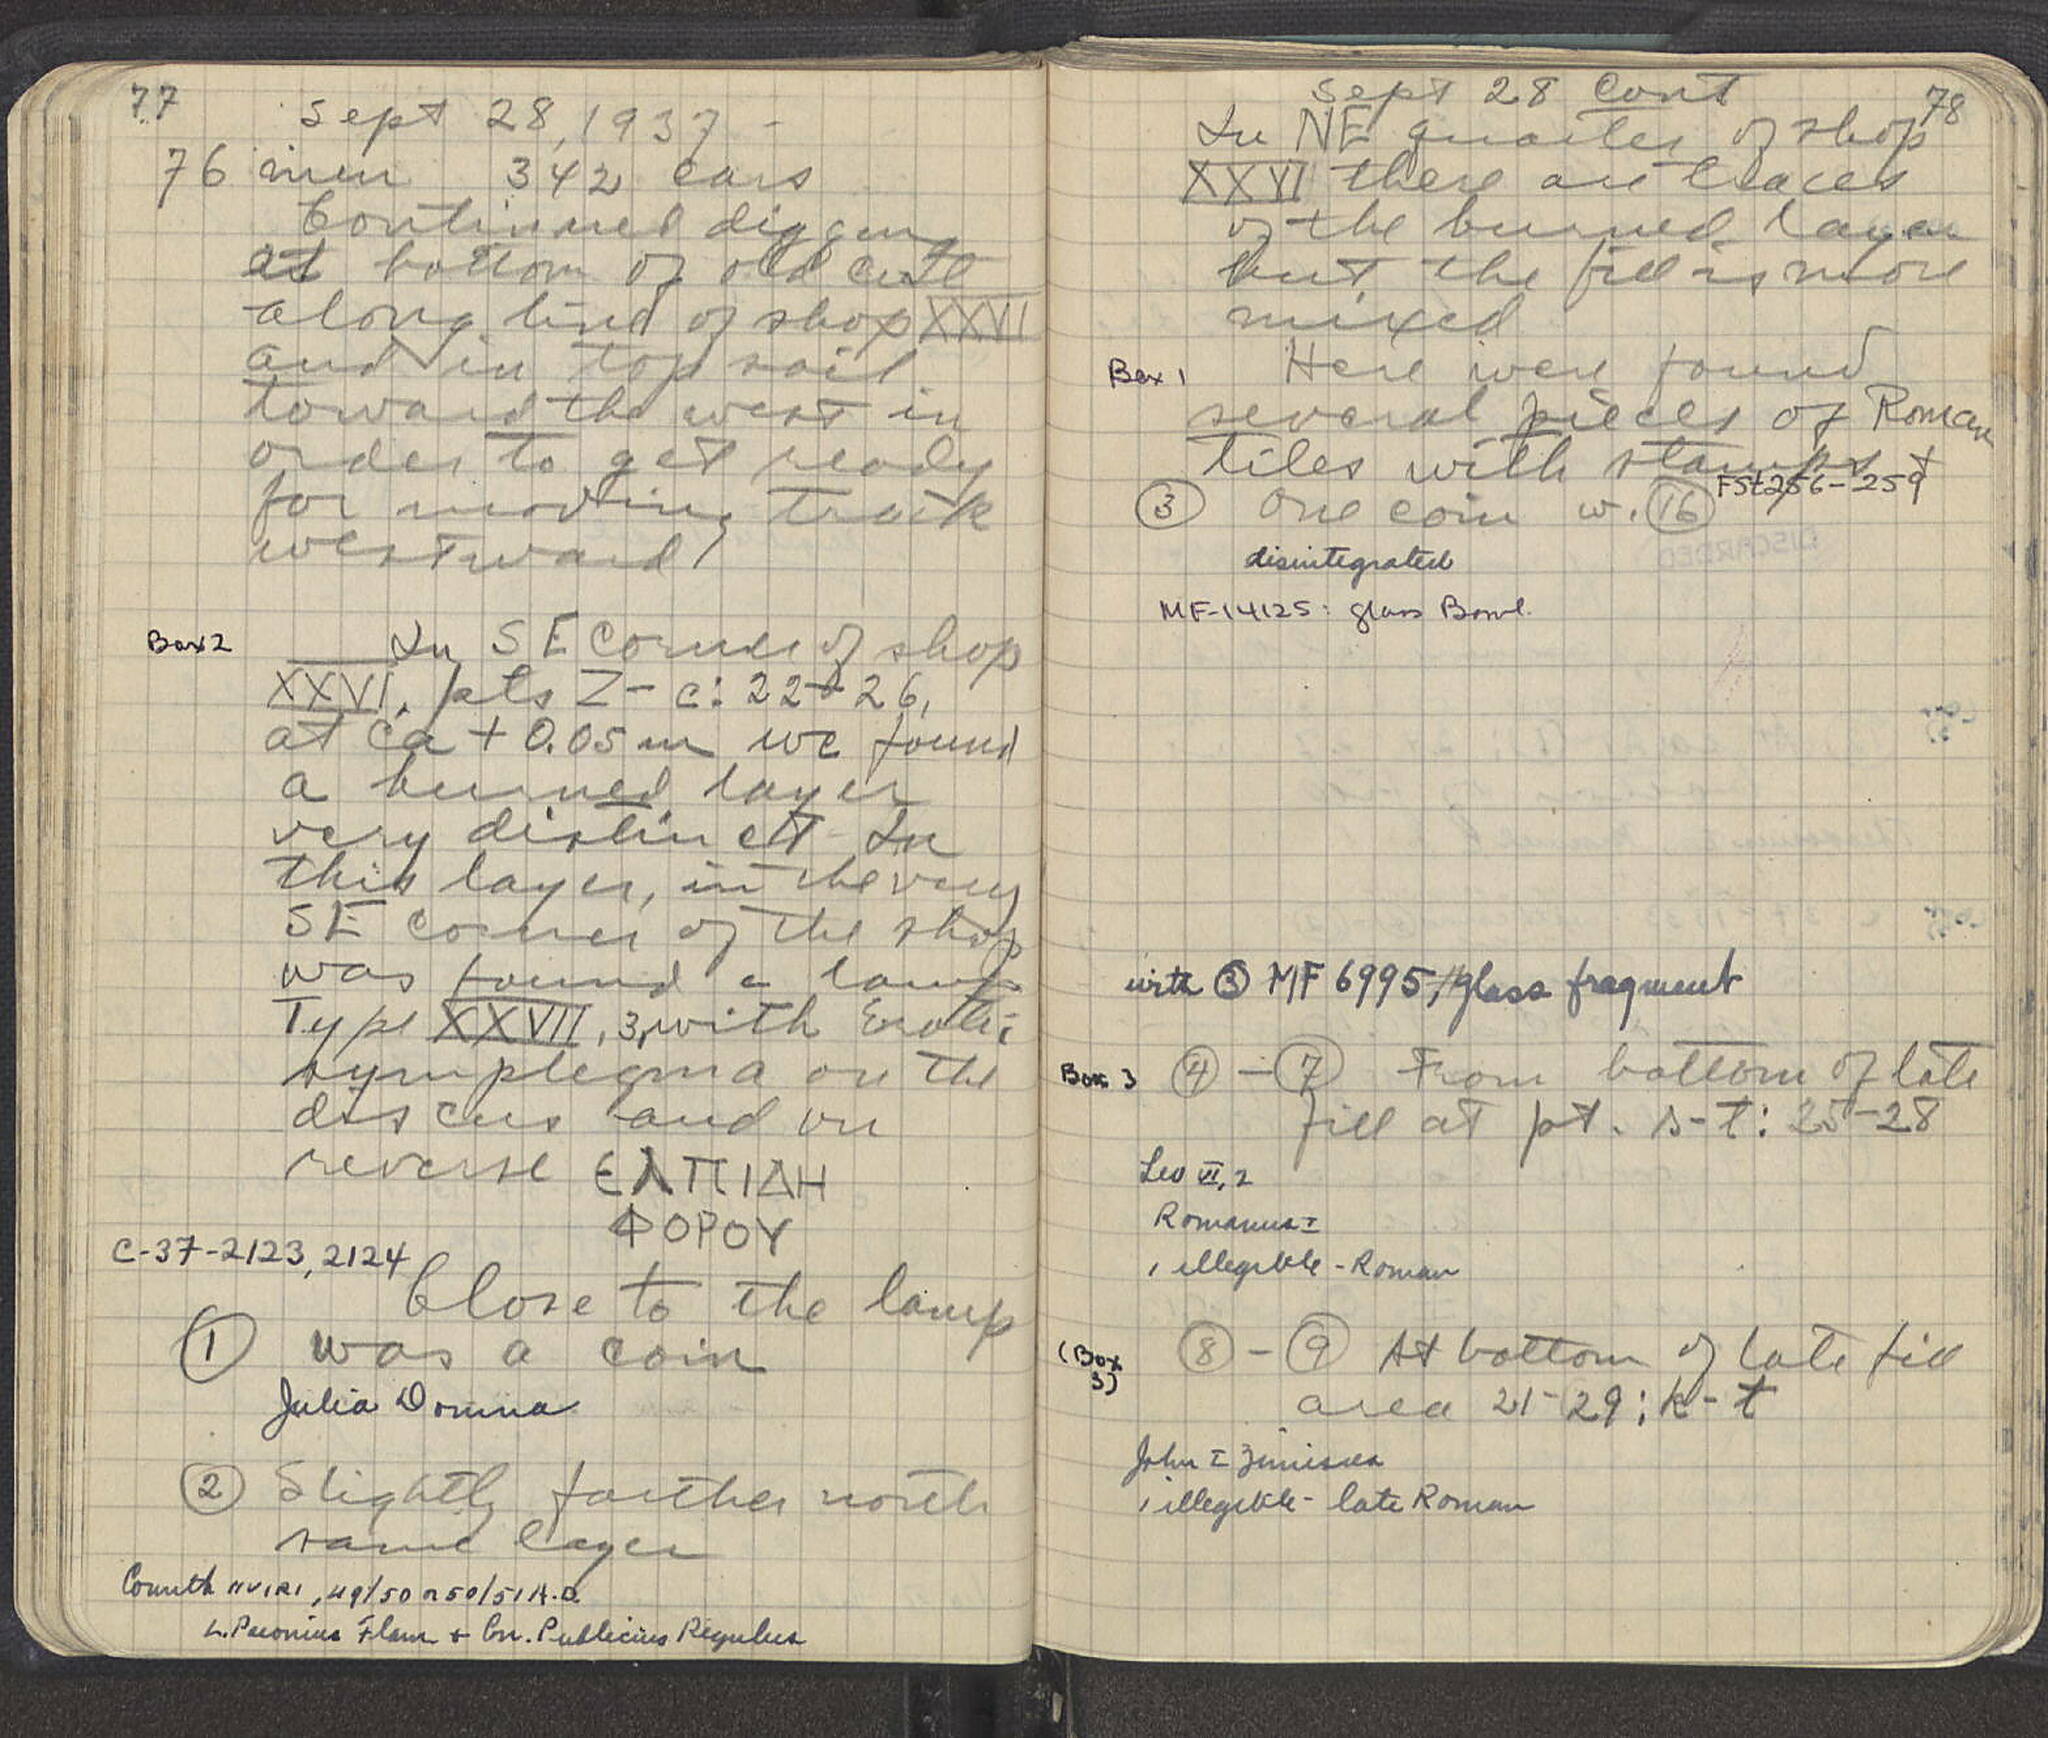 77
Sept 28, 1937 -
76 men 342 cars
Continued digging
at bottom of old cut
along line of shop XXVI
and in top soil
toward the west in
order to get ready
for moving track
westward
Box 2
In SE corner of shop
XXVI, pts Z - c: 22-26,
at ca + 0.05 m we found
a burned layer
very distinct In
this layer, in the very
SE corner of the shop
was found a lamp
Type XXVII, 3, with Erotic
symplegma on the
discus and on
reverse ΕΛΠΙΔΗ
ΦΟΡΟΥ
C-37-2123, 2124
Close to the lamp
① was a coin
Julia Domna
② Slightly farther north
same layer
Corinth IIVIRI, 49/50 or 50/51 A.D.
L. Paconius Flam + Cn. Publicius Regulus
78
Sept 28 Cont
In NE quarter of shop
XXVI there are traces
of the burned layer
but the fill is more
mixed
Box 1
Here were found
several pieces of Roman
tiles with stamps +
FSt 256-259
③ One coin w. ⑯
disintegrated
MF-14125: glass Bowl.
with ③ MF 6995, glass fragment
Box 3 ④-⑦ From bottom of late
fill at pt. s-t: 25-28
Leo VI, 2
Romanus I
1 illegible - Roman
(Box 3) ⑧-⑨ At bottom of late fill
area 21-29: k-t
John I Zimisces
1 illegible - late Roman